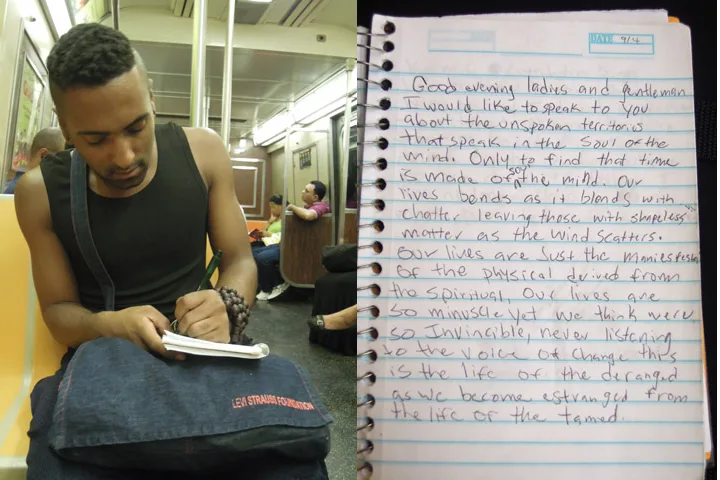 LEVI STRAUSS FOUNDATION
DATE 9/4
Good evening ladies and gentleman
I would like to speak to you
about the unspoken territoris
that speak in the Soul of the
mind. Only to find that time
is made of soy the mind. Our
lives bends as it blends with
chatter leaving those with shapeless
matter as the wind scatters.
Our lives are Just the
of the physical derived fromm
the spiritual, Our lives are
so minuscle yet we think were
so Invincible, never listening
to the voice of change this
is the life of the deranged
as we become estranged from
the life of the tamed.